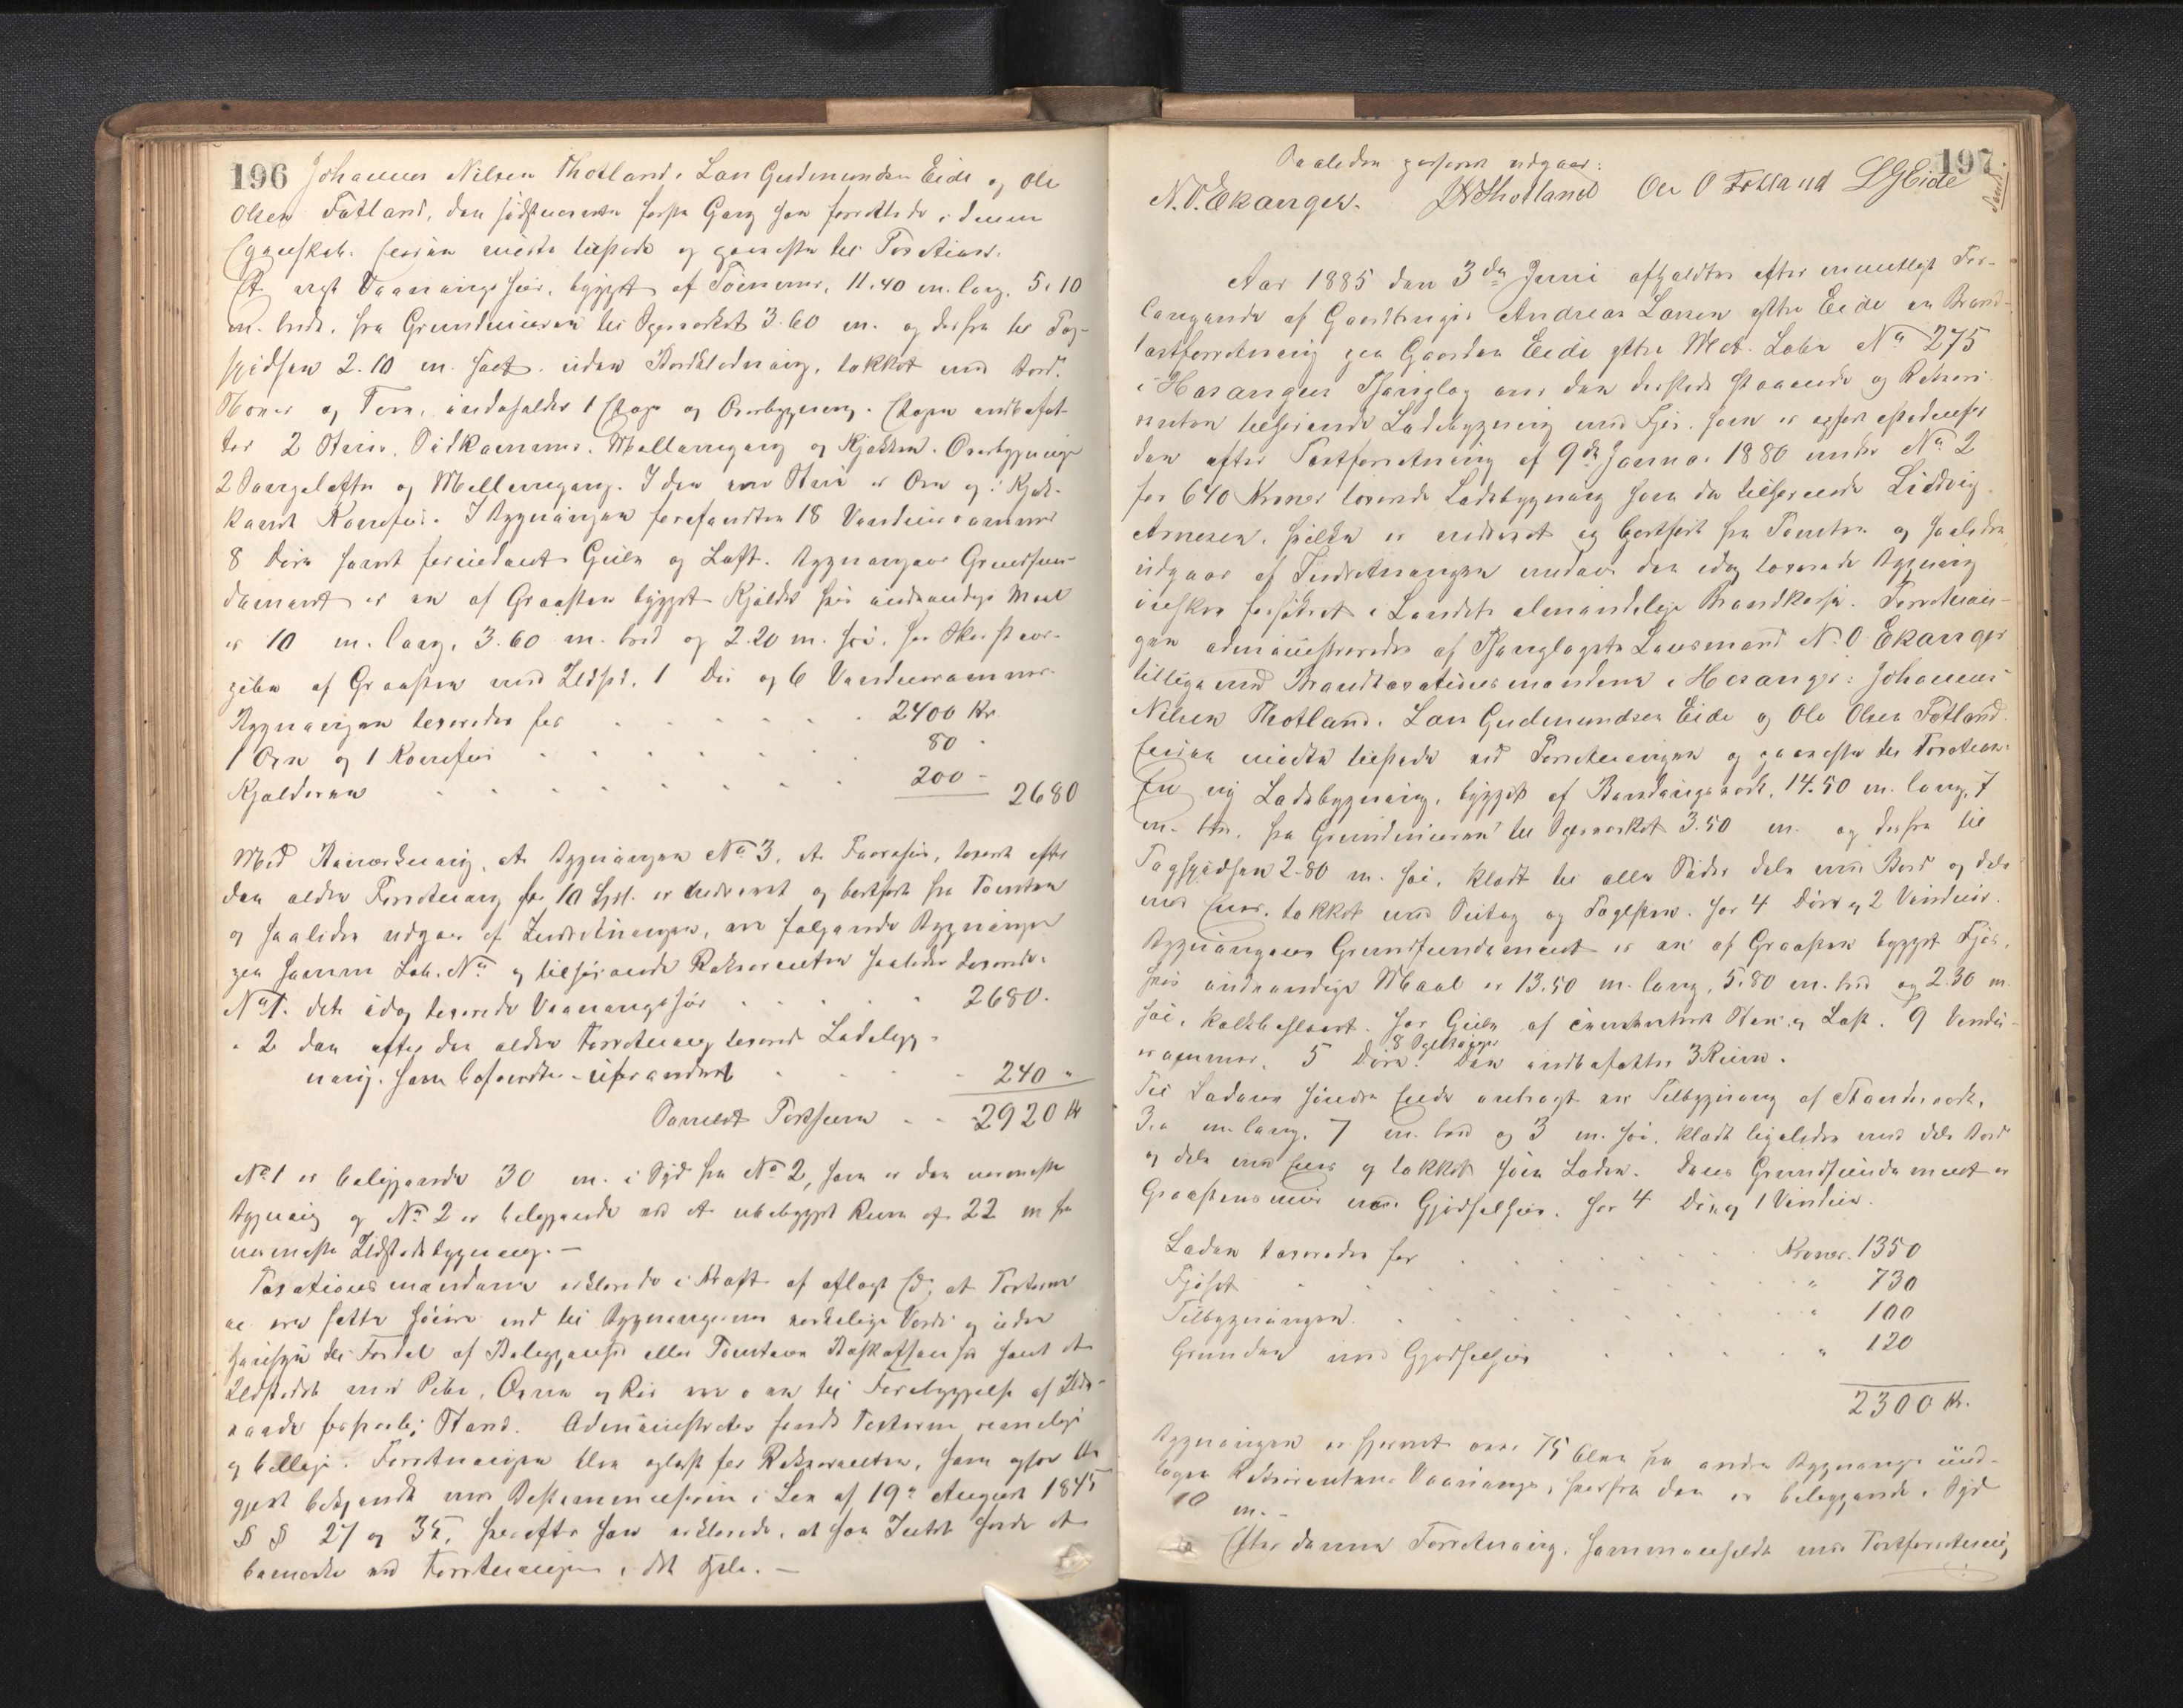 196
Johannes Nilsen Thotland, Lars Gudmundsen Eide og Ole
Olsen Fotland, den sidstnævnte første Gang som forrettede i denne
Egenskab. Eieren mødte tilstede og paaviste til Taxation.
Et nyt Vaaningshus, bygget af Tømmer, 11.40 m. lang, 5.10
m. bred, fra Grundmuren til Ovensverket 3.60 m. og derfra til Tag-
spidsen 2.10 m. høit, uden Bordklædning, takket med Bord,
Næver og Torv, indeholder 1 Etage og Overbygning. Etagen indbefat-
ter 2 Stuer, Sidkammer, Mellemgang og Kjøkken. Overbygningen
2 Sengelofter og Mellemgang. I den ene Stue er Ovn og i Kjøk-
kenet Komfur. I Bygningen forefandtes 18 Vinduesrammer
8 Døre samt fornødent Gulv og Loft. Bygningens Grundfun-
dament er en af Graasten bygget Kjelder hvis indvendige Maal
er 10 m. lang, 3.60 m. bred og 2.20 m. høi, har Skorstens-
pibe af Graasten med Ildsted, 1 Dør og 6 Vinduesrammer.
Bygningen taxeredes for 2400 Kr.
1 Ovn og 1 Komfur 80
Kjelderen 200 2680
Med Bemærkning, at Bygningen No 3, et Faarehus, taxeret efter
den ældre Forretning for 10 Spd. er nedrevet og bortført fra Tomten
og saaledes udgaar af Indretningen, ere følgende Bygninger
paa samme Løb. No og tilhørende Rekvirenten saaledes taxerede:
No 1. det idag taxerede Vaaningshus 2680.
" 2 den efter den ældre Forretning taxerede Ladebyg-
ning, som befandtes uforandret 240 "
Samlet Taxtsum 2920 Kr
No 1 er beliggende 30 m. i Syd fra No 2, som er den nærmeste
Bygning og No 2 er beliggende ved et ubebygget Rum af 22 m fra
nærmeste Ildstedsbygning. —
Taxationsmændene erklærede i Kraft af aflagt Ed, at Taxterne
ei ere satte høiere end til Bygningernes virkelige Værdi og uden
Hensyn til Fordel af Beliggenhed eller Tomtens Beskaffenhed samt at
Ildstedet med Pibe, Ovne og Rør ere i en til Forebyggelse af Ilds-
vaade forsvarlig Stand. Administrator fandt Taxterne rimelige
og billige. Forretningen blev oplæst for Rekvirenten, som ogsaa blev
gjort bekjendt med Bestemmelserne i Lov af 19de August 1845
§ § 27 og 35, hvorefter han erklærede, at han Intet havde at
bemærke ved Forretningen i det Hele. —
197
Saaledes passeret udgaar:
N. O. Ekanger. JNThotland Ole O Fotland LGEide
Aar 1885 den 3de Juni afholdtes efter mundtligt For-
langende af Gaardbruger Andreas Larsen ytre Eide en Brand-
taxtforretning paa Gaarden Eide ytre Mat. Løbe No 275
i Hosanger Thinglag over den dersteds staaende og Rekvi-
renten tilhørende Ladebygning med Fjøs, som er opført istedenfor
den efter Taxtforretning af 9de Januar 1880 under No 2
for 640 Kroner taxerede Ladebygning som da tilhørende Ludvig
Arnesen, hvilken er nedrevet og bortført fra Tomten og saaledes
udgaar af Indretningen medens den idag taxerede Bygning
ønskes forsikret i Landets almindelige Brandkasse. Forretnin-
gen administreredes af Thinglagets Lensmand N. O. Ekanger
tilligemed Brandtaxationsmændene i Hosanger: Johannes
Nilsen Thotland, Lars Gudmundsen Eide og Ole Olsen Fotland.
Eieren mødte tilstede ved Forretningen og paaviste til Taxation.
En ny Ladebygning, bygget af Bindingsverk, 14.50 m. lang, 7
m. br. fra Grundmuren til Ovensverket 3.50 m. og derfra til
Tagspidsen 2.80 m. høi, klædt til alle Sider dels med Bord og dels
med Ener, takket med Sutag og Taglsten. har 4 Døre og 2 Vinduer.
Bygningens Grundfundament er en af Graasten bygget Fjøs,
hvis indvendige Maal er 13.50 m. lang, 5.80 m. bred og 2.30 m
høi, kalkbeslaaet. har Gulv af Sten og Loft. 9 Vindu-
erammer, 5 Døre. 8 Den indbefatter 3 Rum.
Til Ladens søndre Ende anbragt en Tilbygning af Standverk,
3. m. lang, 7 m. bred og 3 m. høi, klædt ligeledes med dels Bord
og dels med Ener og takket som Laden. Dens Grundfundament er
Graastensmur med Gjødselhus. har 4 Døre og 1 Vindue.
Laden taxeredes for Kroner. 1350
Fjøset " 730
Tilbygningen " 100
Grunden med Gjødselhus " 120
2300 Kr.
Bygningen er fjernet over 75 Alen fra andre Bygninger und-
tagen Rekvirentens Vaanings, hvorfra den er beliggende i Syd
10 m. —
Efter denne Forretning, sammenholdt med Taxtforretning